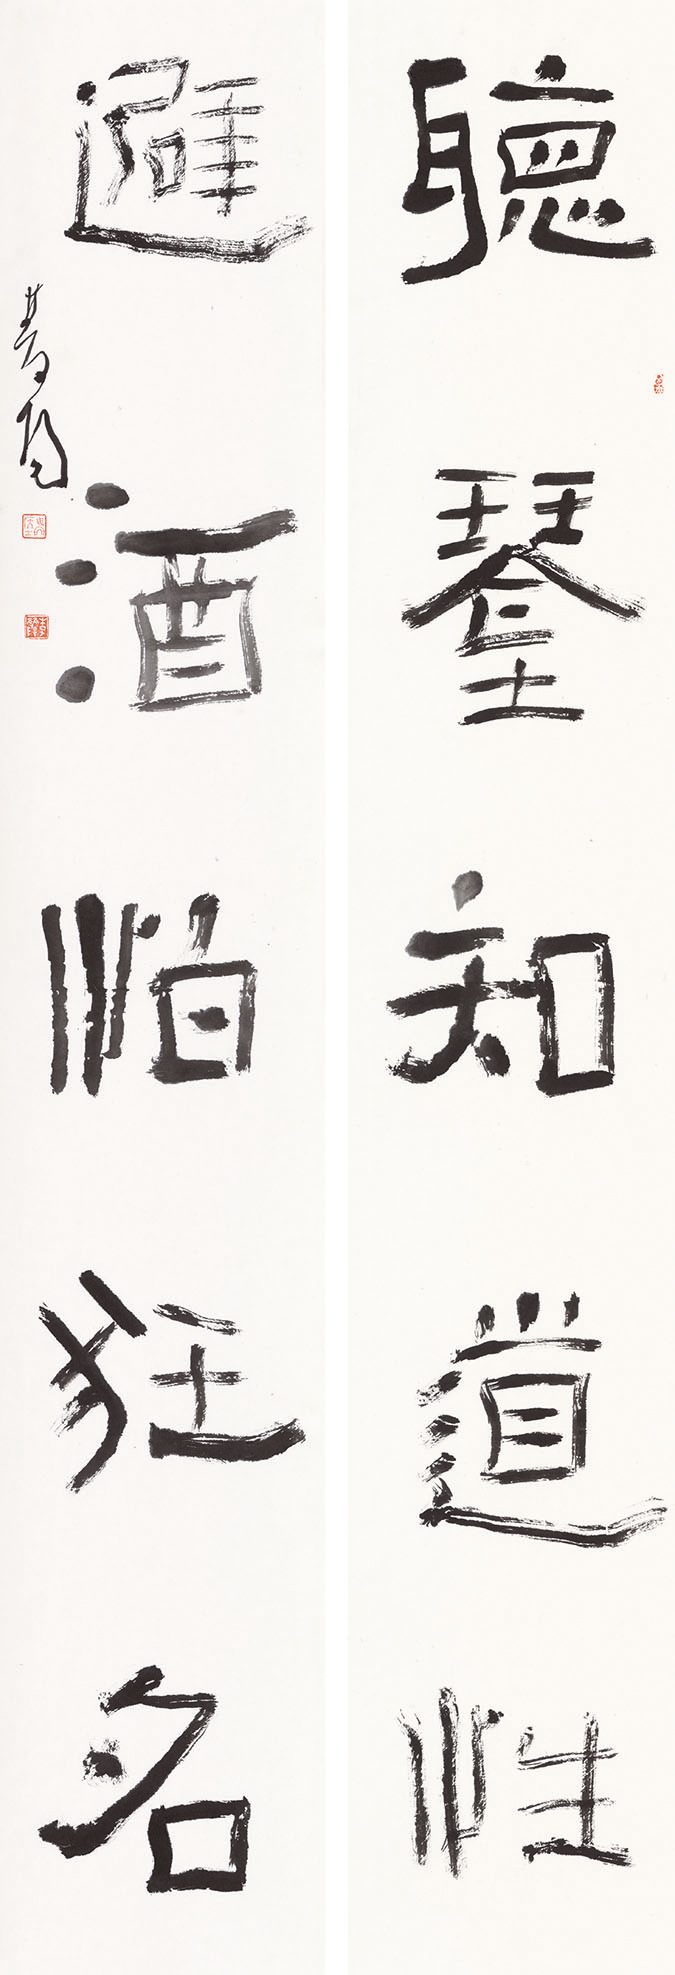 聽琴知道性
避酒怕狂名